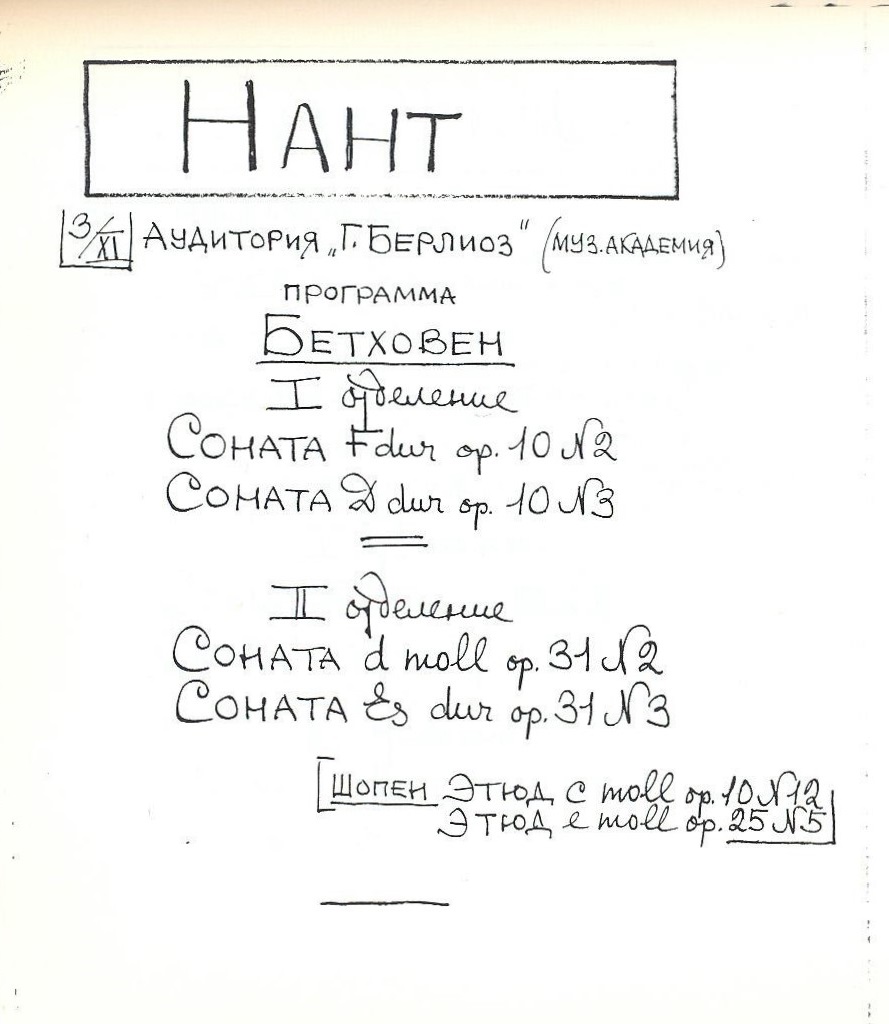 НАНТ
3/XI АУДИТОРИЯ „Г. БЕРЛИОЗ" (МУЗ. АКАДЕМИЯ)
ПРОГРАММА
БЕТХОВЕН
I отделение
СОНАТА F dur op. 10 N2
СОНАТА D dur op. 10 N3
II отделение
СОНАТА d moll op. 31 N2
СОНАТА Es dur op. 31 N3
[ШОПЕН ЭТЮД c moll op. 10 N12
ЭТЮД e moll op. 25 N5]